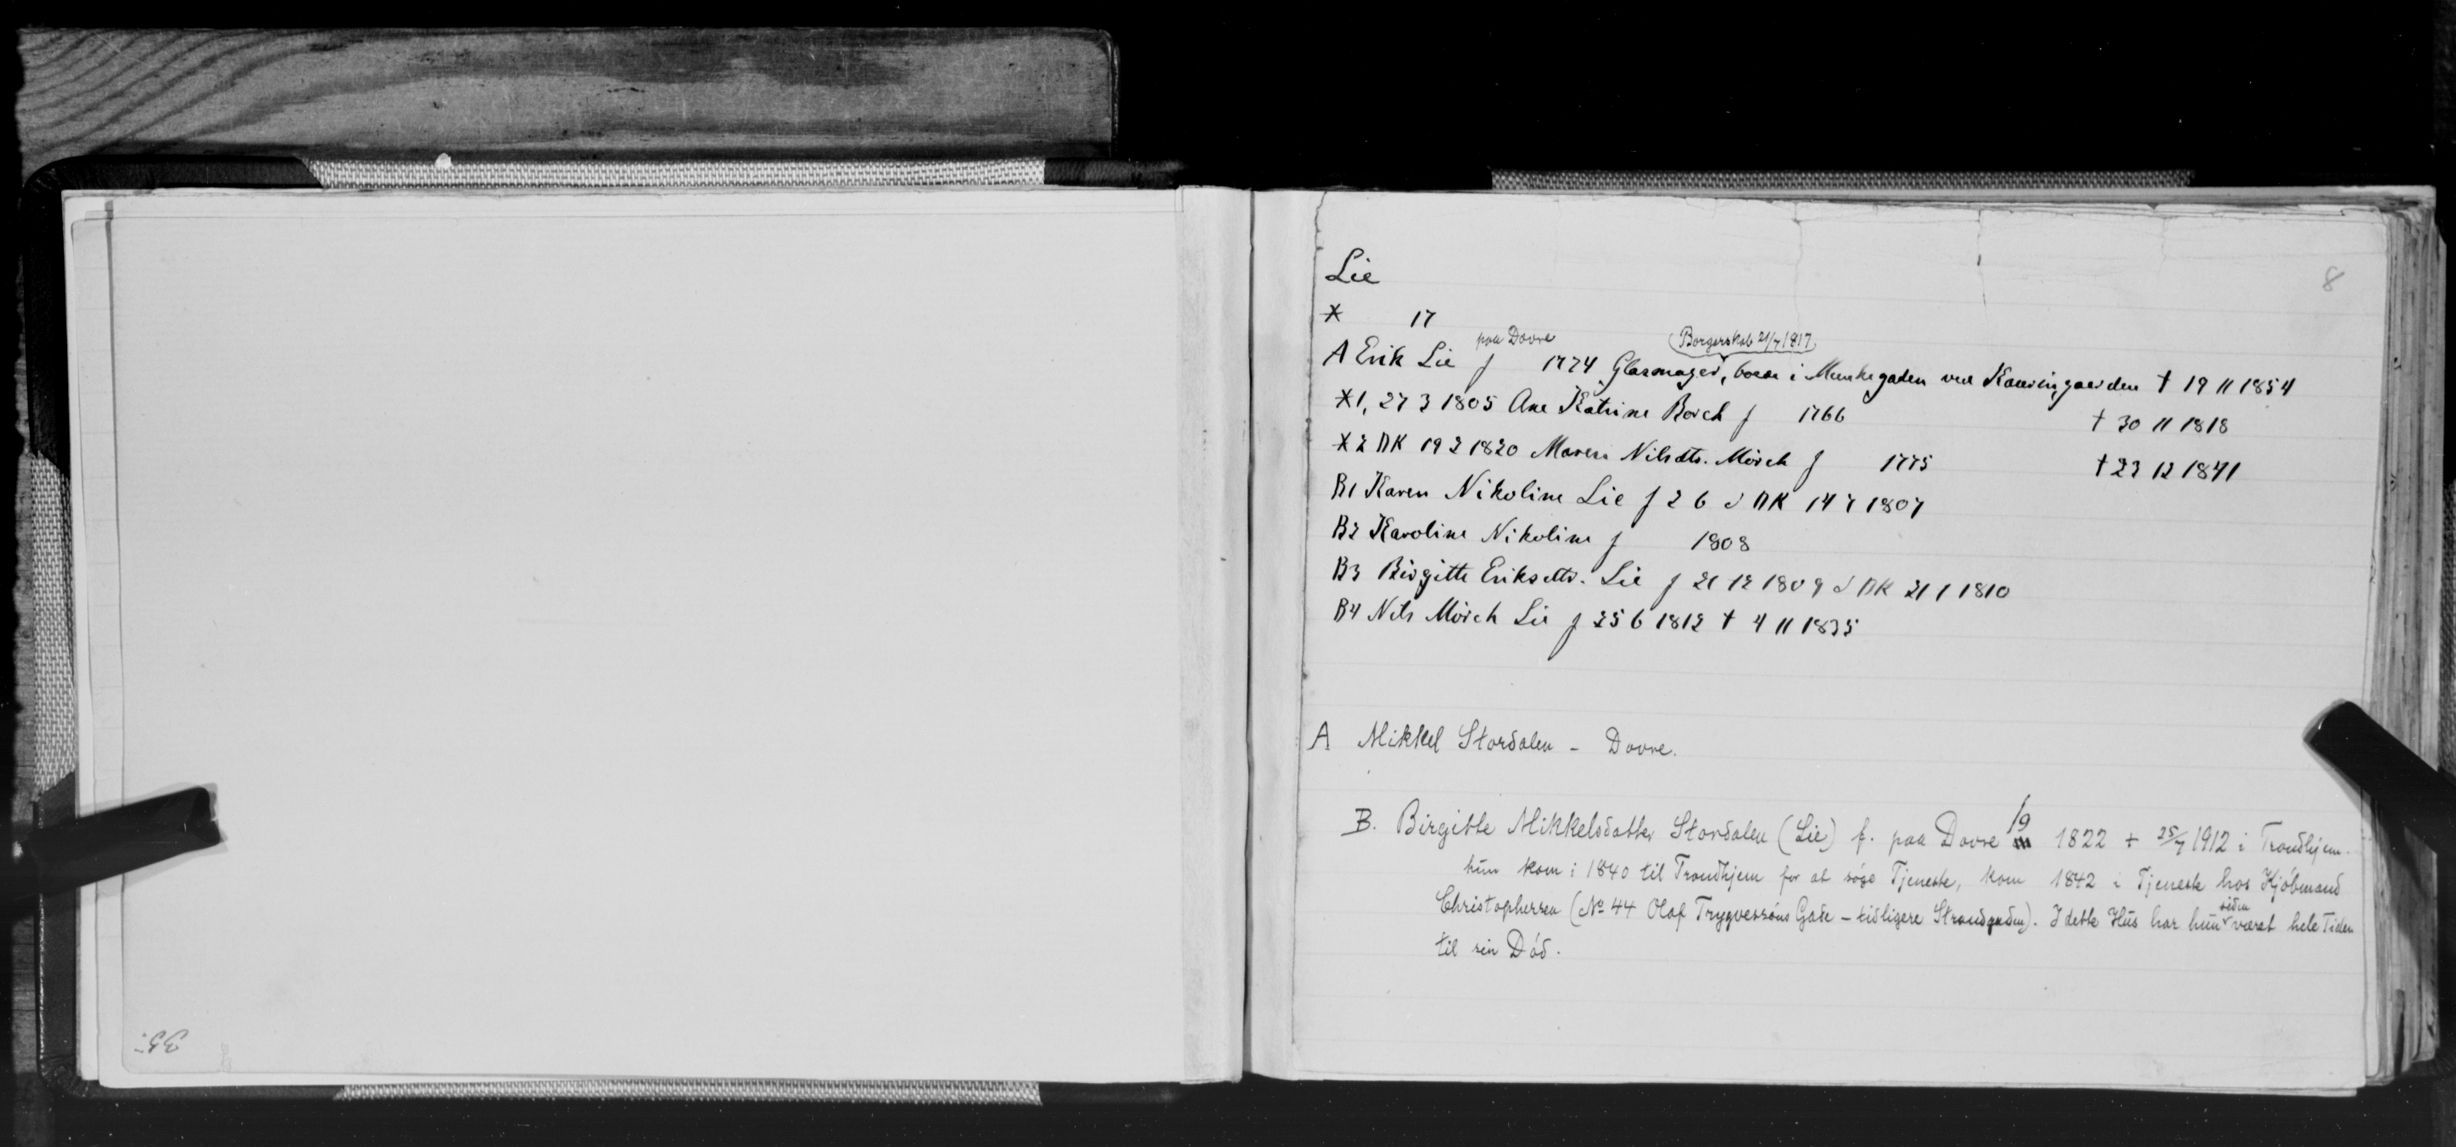 8
Lie
* 17
paa Dovre
Borgerskab 21/7 1817
A Erik Lie f 1774 Glasmager, boede i Munkegaden ved † 19 11 1854
*1, 27 3 1805 Ane Katrine Borch f 1766 † 30 11 1818
*2 DK 19 2 1820 Maren Nilsdtr. Mörch f 1775 † 23 12 1841
B1 Karen Nikoline Lie f 2 6 d DK 14 7 1807
B2 Karoline Nikoline f 1808
B3 Birgitte Eriksdtr. Lie f 21 12 1809 d DK 21 1 1810
B4 Nils Mörch Lie f 25 6 1812 † 4 11 1835
A Mikkel Stordalen - Dovre.
B. Birgitte Mikkelsdatter Stordalen (Lie) f. paa Dovre 1822 + 25/7 1912 i Trondhjem.
hun kom i 1840 til Trondhjem for at söge Tjeneste, kom 1842 i Tjeneste hos Kjöbmand
Christophersen (No 44 Olaf Trygvessöns Gade - tidligere Strandgaden). I dette Hus har hun siden været hele Tiden
til sin Död.
35.